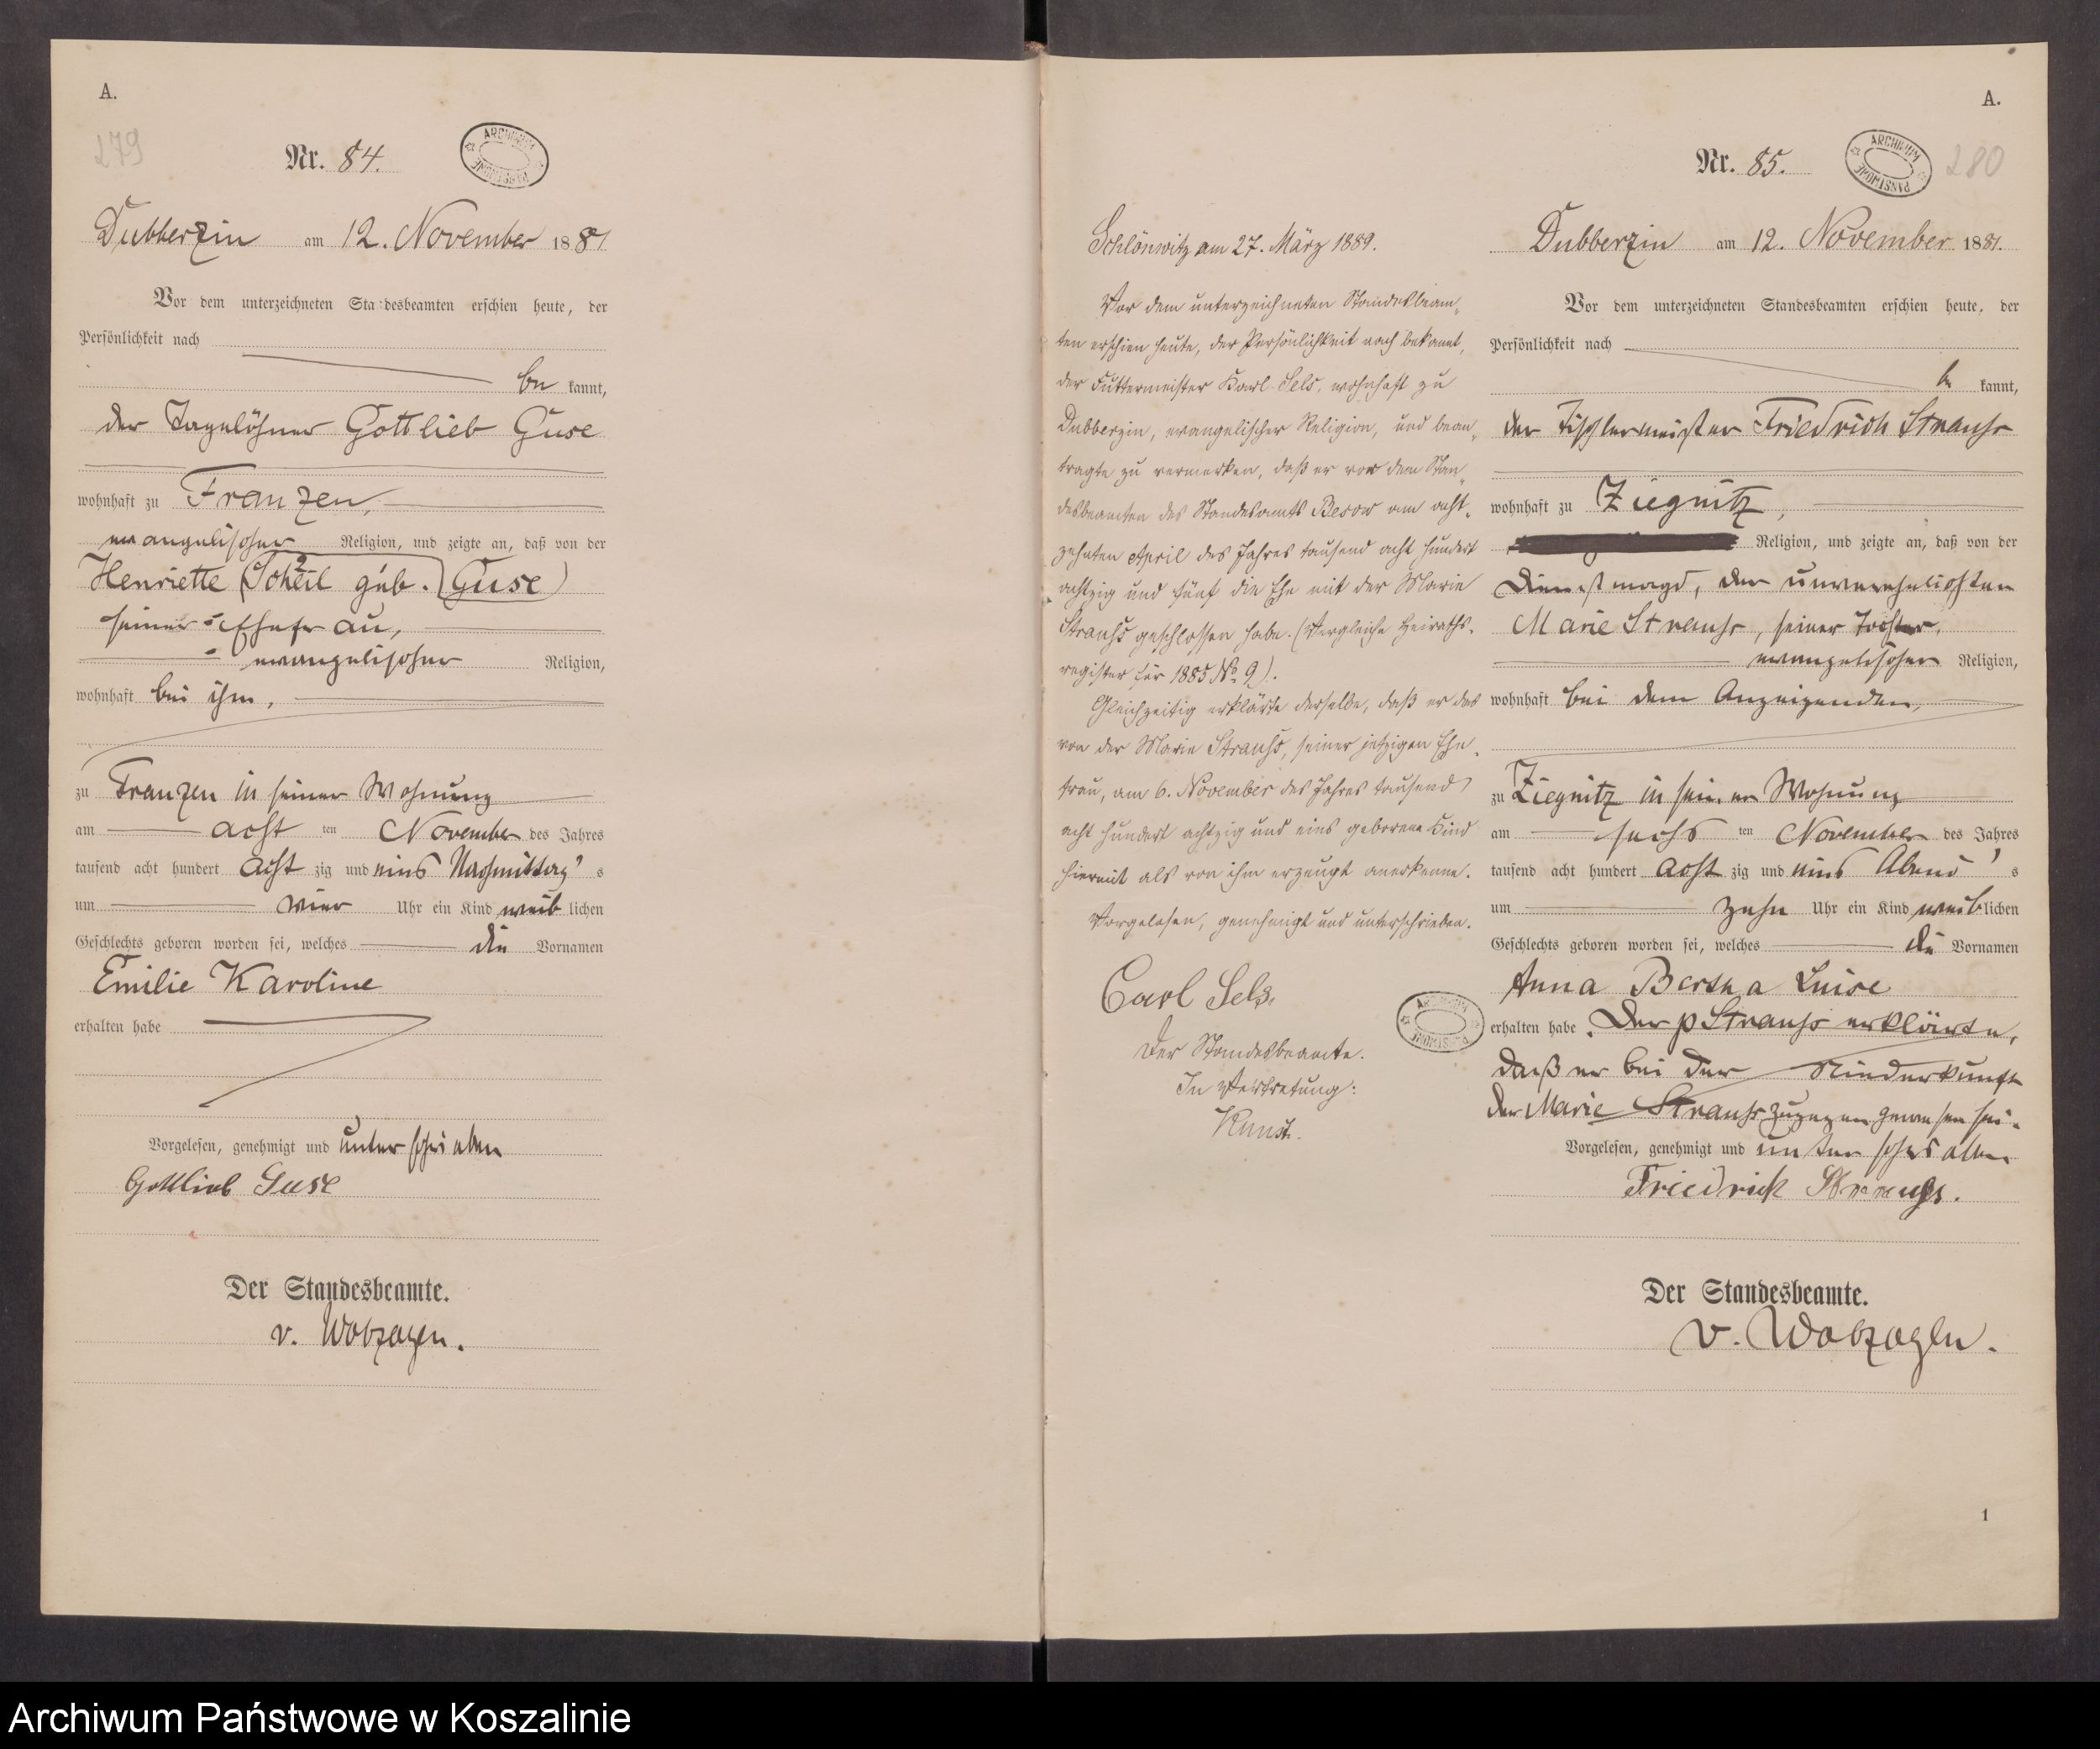 A.
279
Nr. 84.
ARCHIWUM PAŃSTWOWE
Dubberzin am 12. November 1881
Vor dem unterzeichneten Standesbeamten erschien heute, der
Persönlichkeit nach
be kannt,
der Tagelöhner Gottlieb Guse
wohnhaft zu Franzen,
evangelischer Religion, und zeigte an, daß von der
Henriette (Scheil geb. Guse)
seiner Ehefrau,
evangelischer Religion,
wohnhaft bei ihm,
zu Franzen in seiner Wohnung
am acht ten November des Jahres
tausend acht hundert acht zig und eins Nachmittag's
um vier Uhr ein Kind weib lichen
Geschlechts geboren worden sei, welches die Vornamen
Emilie Karoline
erhalten habe
Vorgelesen, genehmigt und unterschrieben
Gottlieb Guse
Der Standesbeamte.
v. Wobzogen.
A.
Nr. 85.
ARCHIWUM PAŃSTWOWE
280
Schlönwitz am 27. März 1889.
Vor dem unterzeichneten Standesbeam-
ten erschien heute, der Persönlichkeit nach bekannt,
der Futtermeister Karl Sels, wohnhaft zu
Dubberzin, evangelischer Religion, und bean-
tragte zu vermerken, daß er vor dem Stan-
desbeamten des Standesamts Besow am acht-
zehnten April des Jahres tausend acht hundert
achtzig und fünf die Ehe mit der Marie
Strauhs geschlossen habe. (Vergleiche Heiraths-
register für 1885 No. 9).
Gleichzeitig erklärte derselbe, daß er das
von der Marie Strauhs, seiner jetzigen Ehe-
frau, am 6. November des Jahres tausend
acht hundert achtzig und eins geborene Kind
hiermit als von ihm erzeugt anerkenne.
Vorgelesen, genehmigt und unterschrieben.
Carl Sels.
ARCHIWUM PAŃSTWOWE
Der Standesbeamte.
In Vertretung:
Kunst.
Dubberzin am 12. November 1881.
Vor dem unterzeichneten Standesbeamten erschien heute, der
Persönlichkeit nach
be kannt,
der Tischlermeister Friedrich Strauhs
wohnhaft zu Ziegnitz,
Religion, und zeigte an, daß von der
Dienstmagd, der unverehelichten
Marie Strauhs, seiner Tochter,
evangelischer Religion,
wohnhaft bei dem Anzeigenden,
zu Ziegnitz in seiner Wohnung
am sechs ten November des Jahres
tausend acht hundert acht zig und eins Abend's
um zehn Uhr ein Kind weib lichen
Geschlechts geboren worden sei, welches die Vornamen
Anna Bertha Luise
erhalten habe. Der p Strauhs erklärte,
daß er bei der Niederkunft
der Marie Strauhs zugegen gewesen sei.
Vorgelesen, genehmigt und unterschrieben
Friedrich Strauhs.
Der Standesbeamte.
v. Wobzogen.
1
Archiwum Państwowe w Koszalinie